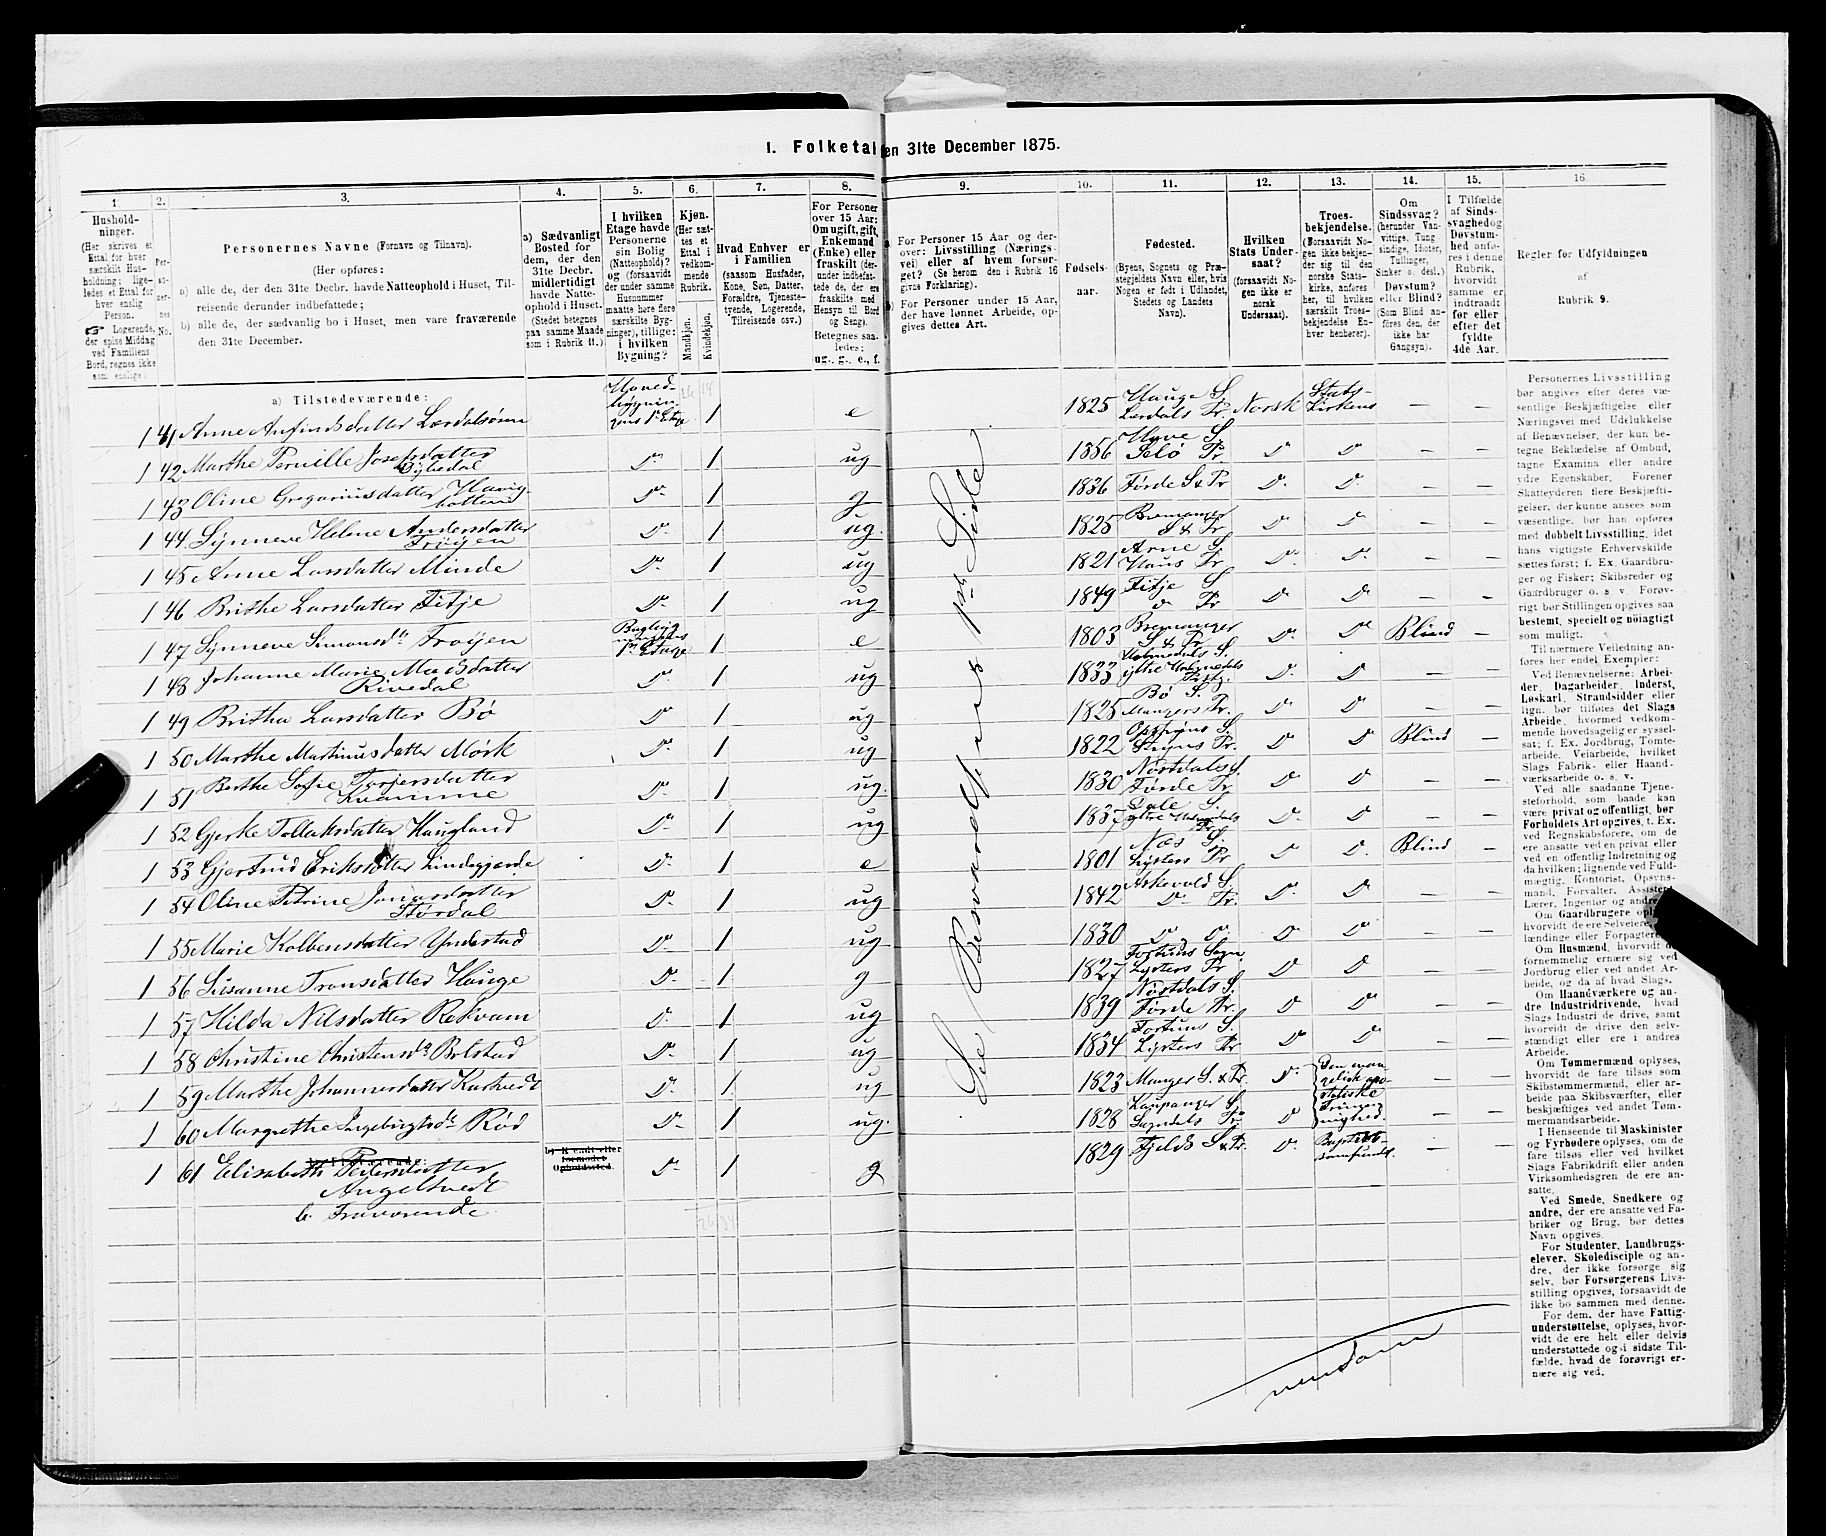 1. Folketal den 31te December 1875.
1
Hushold-
ninger.
(Her skrives et
Ettal for hver
særskilt Hus-
holdning; lige-
ledes et Ettal for
hver enslig
Person.
Logerende,
der spise Middag
ved Familiens
Bord, regnes ikke
som enslige)
2.
Per-
so-
ner-
nes
No.
3.
Personernes Navne (Fornavn og Tilnavn).
(Her opføres:
a) alle de, der den 31te Decbr. havde Natteophold i Huset, Til-
reisende derunder indbefattede;
b) alle de, der sædvanlig bo i Huset, men vare fraværende
den 31te December.
4.
a) Sædvanligt
Bosted for
dem, der den
31te Decbr.
midlertidigt
havde Natte-
ophold i Huset.
(Stedet betegnes
paa samme Maade
som i Rubrik 11.)
5.
I hvilken
Etage havde
Personerne
sin Bolig
(Natteophold)?
og (forsaavidt
der under samme
Husnummer
maatte høre flere
særskilte Byg-
ninger), tillige:
i hvilken
Bygning?
6.
Kjøn.
(Her sæt-
tes et
Ettal i
vedkom-
mende
Rubrik.
Mandkjøn.
Kvindekjøn.
7.
Hvad Enhver er
i Familien
(saasom Husfader,
Kone, Søn, Datter,
Forældre, Tjeneste-
tyende, Logerende,
Tilreisende osv.)
8.
For Personer
over 15 Aar:
Om ugift, gift,
Enkemand
(Enke) eller
fraskilt (der-
under indbefat-
tede de, der ere
fraskilte med
Hensyn til Bord
og Seng).
Betegnes saa-
ledes:
ug., g., e., f.
9.
For Personer 15 Aar og der-
over: Livsstilling (Nærings-
vei) eller af hvem forsør-
get? (Se herom den i Rubrik 16
givne Forklaring).
For Personer under 15 Aar,
der have lønnet Arbeide, op-
gives dettes Art.
10.
Fødsels-
aar.
11.
Fødested.
(Byens, Sognets og Præ-
stegjeldets Navn eller, hvis
Nogen er født i Udlandet,
Stedets og Landets
Navn).
12.
Hvilken
Stats Under-
saat?
(forsaavidt No-
gen ikke er
norsk
Undersaat).
13.
Troes-
bekjendelse.
(Forsaavidt No-
gen ikke bekjen-
der sig til den
norske Stats-
kirke, anføres
her, til hvilken
særskilt Troes-
bekjendelse En-
hver henhører).
14.
Om
Sindssvag?
(herunder Van-
vittige, Tung
sindige, Idioter,
Tullinger,
Sinker o. desl.)
Døvstum?
eller Blind?
(Som Blind an-
føres den, der
ikke har
Gangsyn).
15.
I Tilfælde
af Sinds-
svaghed og
Døvstum-
hed anfø-
res i denne
Rubrik,
hvorvidt
samme er
indtraadt
før eller
efter det
fyldte
4de Aar.
16
Regler for Udfyldningen
af
Rubrik 9.
a) Tilstedeværende:
1 41 Anne Anfindsdatter Lærdalsøren Hovedbygningens 1ste Etage 1 e 1825 Hauge S. Lærdals Pr. Norsk Statskirkens — —
1 42 Marthe Pernille Josefsdatter Dybedal Do 1 ug 1856 Hove S. Selø Pr Do Do — —
1 43 Oline Gregoriusdatter Havigbotten Do 1 g 1836 Førde S & Pr Do Do — —
1 44 Synneve Helene Andersdatter Frøyen Do 1 ug. 1825 Bremanger S & Pr Do Do — —
1 45 Anne Larsdatter Minde Do 1 ug 1821 Arne S Haus Pr Do Do — —
1 46 Brithe Larsdatter Fitje Do 1 ug 1849 Fitje S do Pr Do Do — —
1 47 Synneve Simonsdtr Frøyen 1ste Etage 1 e 1803 Bremanger S & Pr Do Do Blind —
1 48 Johanne Marie Madsdatter Rivedal Do 1 ug 1833 Holmedals S. ytre Holmedals Do Do — —
1 49 Britha Larsdatter Bø Do 1 ug 1825 Bø S. Mangers Pr. Do Do — —
1 50 Marthe Martinusdatter Mørk Do 1 ug 1822 Opstryns S. Stryns Pr. Do Do Blind —
1 51 Berthe Sofie Torjersdatter Kvamme Do 1 ug. 1830 Nøstdals S. Førde Pr Do Do — —
1 52 Gjerke Tollaksdatter Haugland Do 1 ug 1837 Dale S. ytre Holmedals Pr Do Do — —
1 53 Gjertrud Eriksdatter Lindegjærde Do 1 e 1801 Næs S Lysters Pr Do Do Blind —
1 54 Oline Petrine Jonasdatter Stordal Do 1 ug 1842 Askevold S. Do Pr. Do Do — —
1 55 Marie Kolbensdatter Yndestad Do 1 ug 1830 Do Do Do Do — —
1 56 Susanne Tronsdatter Hauge Do 1 g 1827 Fortuns Sogn Lysters Pr Do Do — —
1 57 Hilda Nilsdatter Rekvam Do 1 ug 1839 Nøstdals S. Førde Pr. Do Do — —
1 58 Christine Christensdtr Bolstad Do 1 ug 1834 Fortuns S. Lysters Pr Do Do — —
1 59 Marthe Johannesdatter Kartvedt Do 1 ug 1823 Manger S. & Pr. Do Den evangelisk apostoliske Frimenighed. — —
1 60 Margrethe Ingebrigtsdtr Rød Do 1 ug. 1828 Kaupanger S. Sogndals Pr. Do — —
1 61 Elisabeth Pedersdatter Angeltvedt Do 1 g 1829 Fjelds S & Pr. Do Baptistsamfundet. — —
b) Kjendt eller
formodet
Opholdssted.
b. Fraværende
Se Besvarelserne paa 1ste Side
Personernes Livsstilling
bør angives efter deres væ-
sentlige Beskjæftigelse eller
Næringsvei med Udelukkelse
af Benævnelser, der kun be-
tegne Beklædelse af Ombud,
tagne Examina eller andre
ydre Egenskaber. Forener
Skatteyderen flere Beskjæfti-
gelser, der kunne ansees som
væsentlige, bør han opføres
med dobbelt Livsstilling, idet
hans vigtigste Erhvervskilde
sættes først; f. Ex. Gaardbru-
ger og Fisker; Skibsreder og
Gaardbruger o. s. v. Forøv-
rigt bør Stillingen opgives saa
bestemt, specielt og nøiagtigt
som muligt.
Til nærmere Veiledning an-
føres her endel Exempler:
Ved Benævnelserne: Arbei-
der, Dagarbeider, Inderst,
Løskarl, Strandsidder eller
lign. bør tilføies det Slags
Arbeide, hvormed vedkom-
mende hovedsagelig er syssel-
sat; f. Ex. Jordbrug, Tomte-
arbeide, Veiarbeide, hvilket
Slags Fabrik- eller Haand-
værksarbeide o. s. v.
Ved alle saadanne Tjene-
steforhold, som baade kan
være privat og offentligt, bør
Forholdets Art opgives, f. Ex.
ved Regnskabsførere, om de
ere ansatte ved en privat eller
ved en offentlig Indretning og
da hvilken; lignende ved Fuld-
mægtig, Kontorist, Opsyns-
mand, Forvalter,
Lærer, Ingeniør og
Om Gaardbrugere
hvorvidt de ere
lændinge eller
Om Husmænd, hvorvidt
fornemmelig ernære sig ved
Jordbrug eller ved andet Ar-
beide, og da af hvad Slags.
Om Haandværkere og an-
dre Industridrivende, hvad
Slags Industri de drive, samt
hvorvidt de drive den selv-
stændigt eller ere i andres
Arbeide.
Om Tømmermænd oplyses,
hvorvidt de fare tilsøs som
Skibstømmermænd, eller ar-
beide paa Skibsværfter, eller
beskjæftiges ved andet Tøm-
mermandsarbeide.
I Henseende til Maskinister
og Fyrbødere oplyses, om de
fare tilsøs eller ved hvilket
Slags Fabrikdrift eller anden
Virksomhedsgren de ere an-
satte.
Ved Smede, Snedkere og
andre, der ere ansatte ved Fa-
briker og Brug, bør dettes
Navn opgives.
For Studenter, Landbrugs-
elever, Skoledisciple og an-
dre, der ikke forsørge sig
selv, bør Forsørgerens Livs-
stilling opgives, forsaavidt de
ikke bo sammen med denne.
For dem, der have Fattig-
understøttelse, oplyses, hvor-
vidt de ere helt eller delvis
understøttede og i sidste Til-
fælde, hvad de forøvrigt er-
nære sig ved.